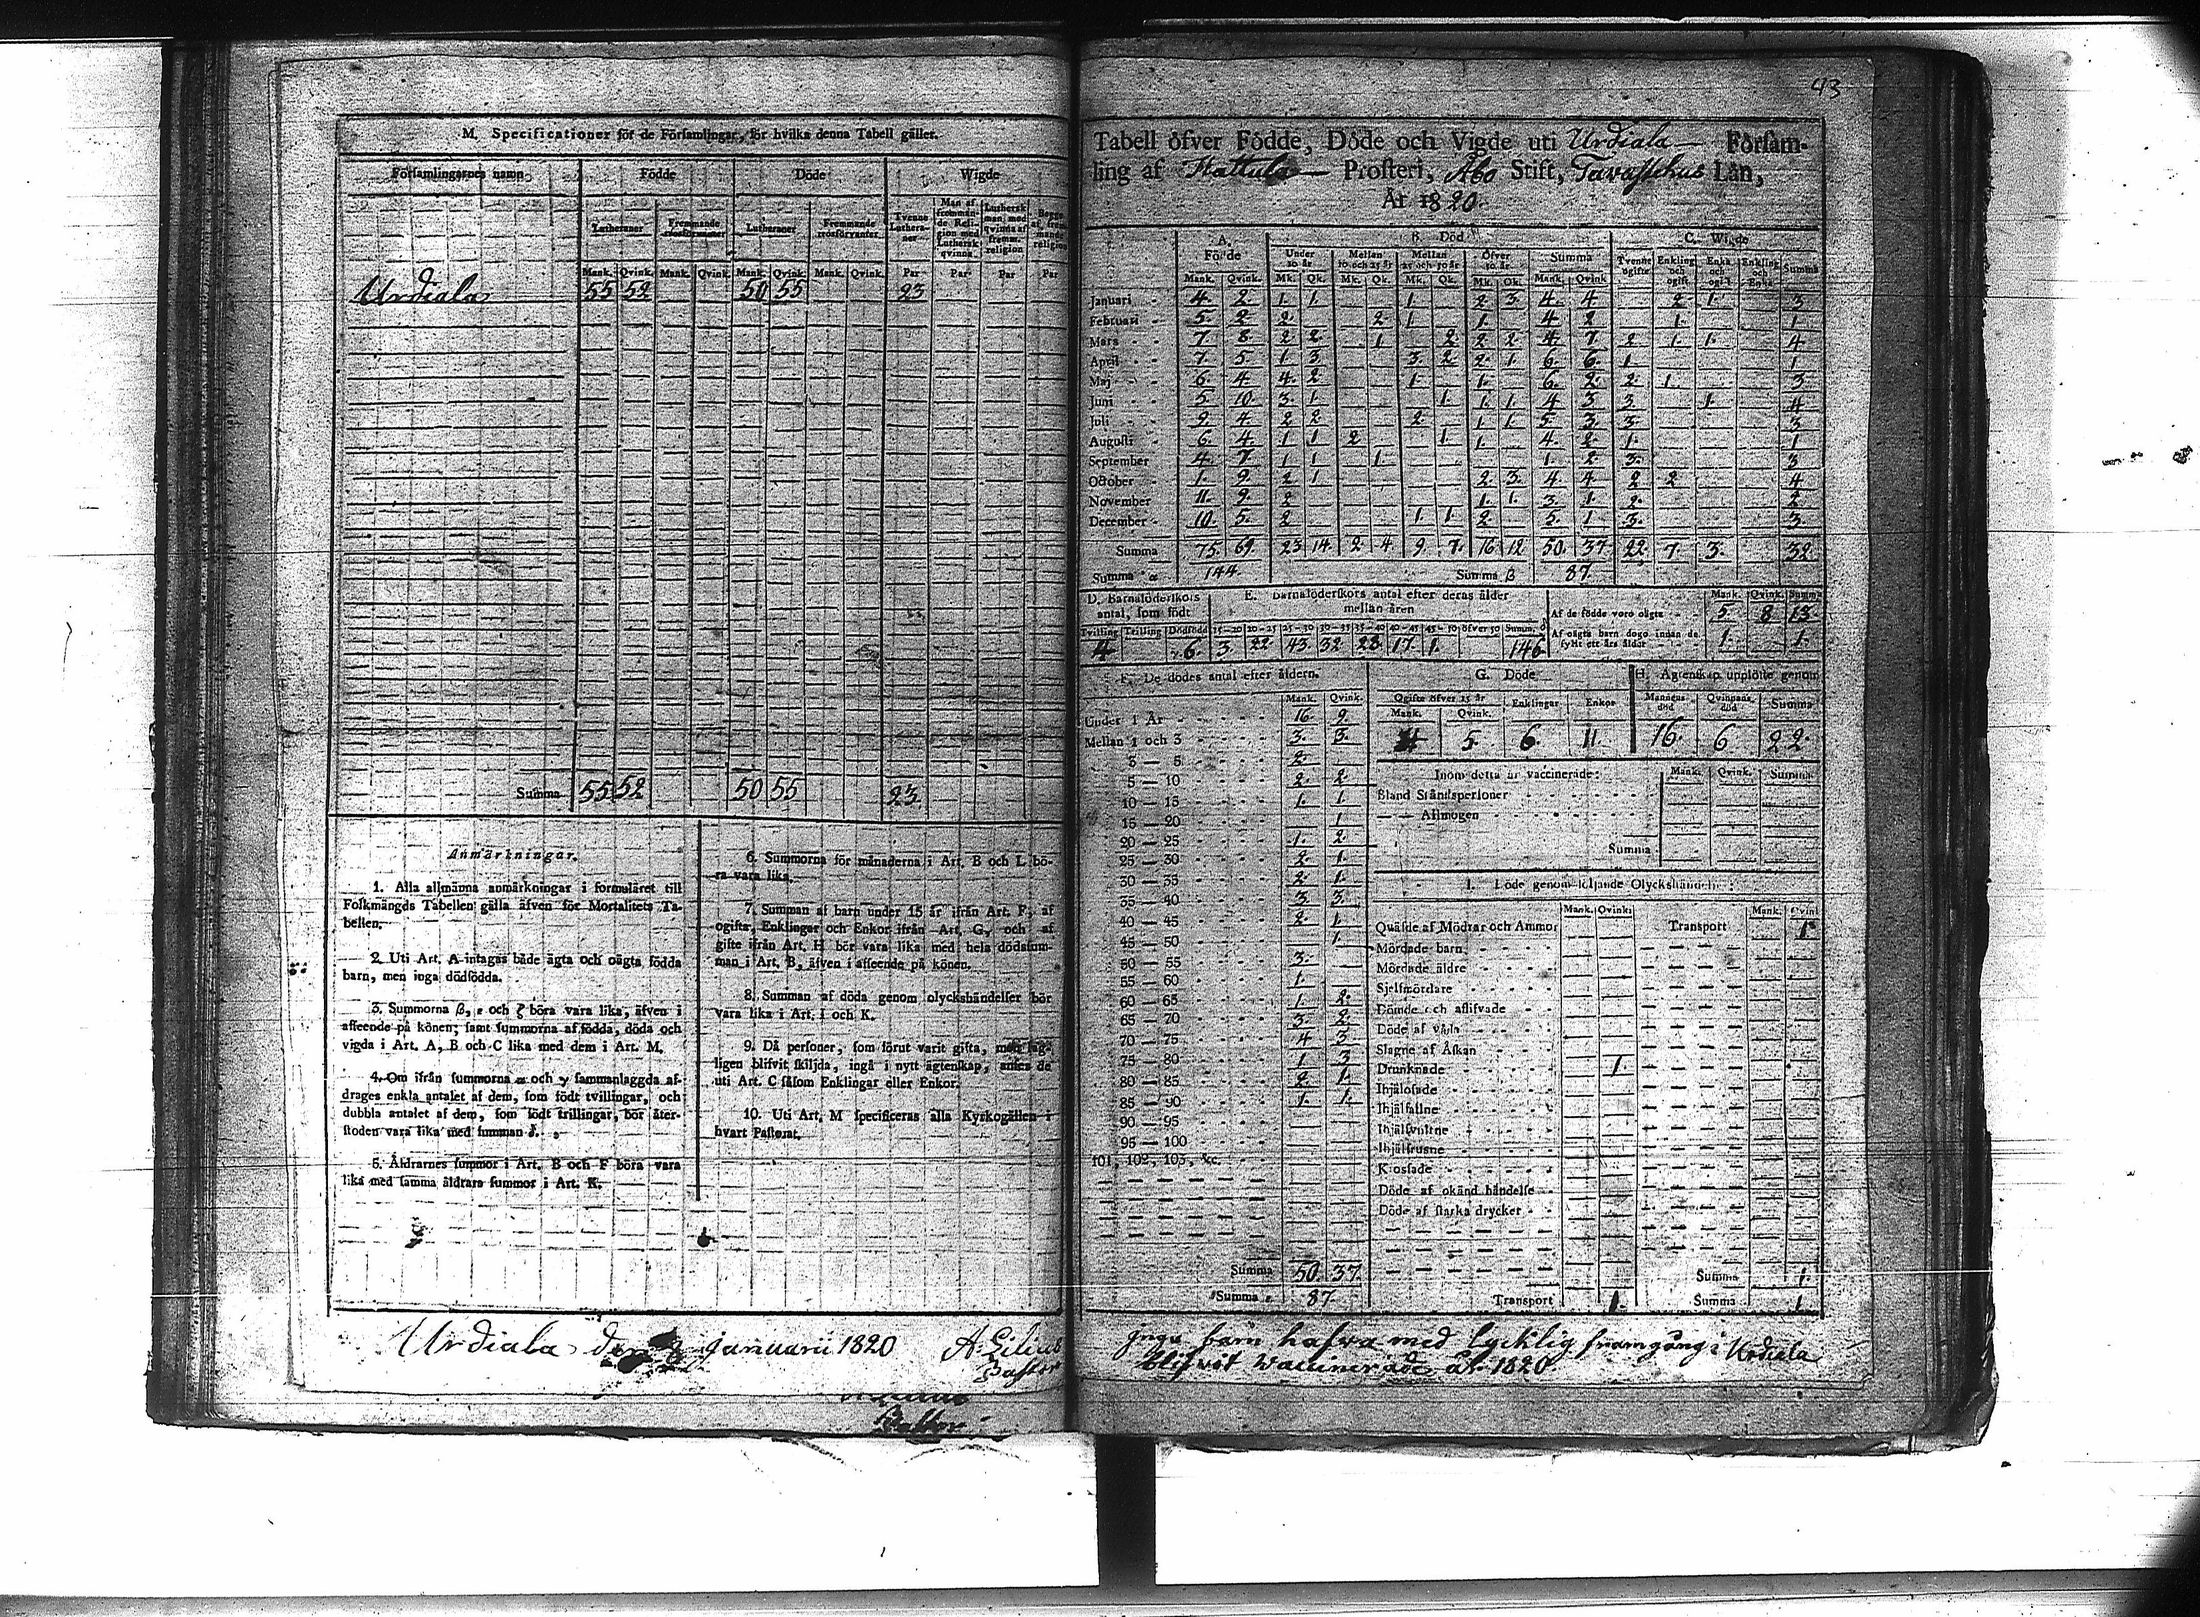 M. Specificationer för de Förſamlingar, för hvilka denna Tabell gäller.
Förſamlingarnes namn. Födde Döde Wigde
Lutheraner Fremmande trosförvanter Lutheraner Fremmande trosförvanter Tvenne Lutheraner Man af fremmande Religion med Luthersk qvinna. Luthersk man med qvinna af fremm. religion Begge af fremmande religion
Mank. Qvink. Mank. Qvink. Mank. Qvink. Mank. Qvink. Par Par Par Par
Urdiala 55 52 50 55 23
Summa 55 52 50 55 23.
Anmärkningar.
1. Alla allmänna anmärkningar i formuläret till
Folkmängds Tabellen gälla äfven för Mortalitets Ta-
bellen.
2. Uti Art. A intagas både ägta och oägta födda
barn, men inga dödfödda.
3. Summorna β, ε och ζ böra vara lika, äfven i
afſeende på könen; ſamt ſummorna af födda, döda och
vigda i Art. A, B och C lika med dem i Art. M.
4. Om ifrån ſummorna α och γ ſammanlaggda af-
drages enkla antalet af dem, ſom födt tvillingar, och
dubbla antalet af dem, ſom födt trillingar, bör åter-
ſtoden vara lika med ſumman δ.
5. Åldrarnes ſummor i Art. B och F böra vara
lika med ſamma åldrars ſummor i Art. K.
6. Summorna för månaderna i Art. B och L bö-
ra vara lika.
7. Summan af barn under 15 år ifrån Art. F, af
ogifta, Enklingar och Enkor ifrån Art. G, och af
gifte ifrån Art. H bör vara lika med hela dödsſum-
man i Art. B, äfven i afſeende på könen.
8. Summan af döda genom olyckshändelſer bör
vara lika i Art. I och K.
9. Då perſoner, ſom förut varit gifta, men lag-
ligen blifvit ſkiljda, ingå i nytt ägtenſkap, antes de
uti Art. C ſåſom Enklingar eller Enkor.
10. Uti Art. M ſpecificeras alla Kyrkogällen i
hvart Paſtorat.
Urdiala den januarii 1820 A Lilius
Paſtor
Paſtor
43
Tabell öfver Födde, Döde och Vigde uti Urdiala Förſam-
ling af Hattula Proſteri, Åbo Stift, Tavaſtehus Län,
År 1820.
A. Födde B. Död C. Wigde
Under 10 år Mellan 10 och 25 år Mellan 25 och 50 år Öfver 50 år Summa Tvenne ogifte Enkling och ogift Enka och ogift Enkling och Enka Summa
Mank. Qvink. Mk. Qk. Mk. Qk. Mk. Qk. Mk. Qk. Mank. Qvink
Januari 4. 2. 1. 1. 1. 2 3. 4. 4. 2 1. 3
Februari 5. 2 2. 2 1. 1. 4 2 1. 1.
Mars 7 8. 2 2. 1. 2 2 2. 4 7 2. 1. 1. 4
April 7 5. 1 3 3. 2 2. 1. 6 6. 1. 1
Maj 6. 4. 4. 2 1. 1. 6. 2. 2. 1. 3
Juni 5. 10. 3. 1. 1. 1. 1. 4 3 3. 1. 4
Juli 2. 4. 2 2 2. 1. 1. 5. 3. 3. 3
Auguſti 6. 4. 1 1. 2 1. 1. 4. 2. 1. 1
September 4. 7. 1 1 1. 1. 2. 3. 3
October 1. 9. 2 1 2. 3. 4 4. 2 2 4
November 11. 9. 2 1. 1. 3. 1. 2. 2
December 10. 5. 2 1. 1. 2. 5. 1 3. 3.
Summa 75. 69. 23 14. 2. 4. 9. 7. 16. 12 50. 37. 22. 7. 3. 32
Summa α 144. Summa β 87.
D. Barnaföderſkors antal, ſom födt
E. Barnaföderſkors antal efter deras ålder mellan åren
Tvilling Trilling Dödfödd 15-20 20-25 25-30 30-35 35-40 40-45 45-50 öfver 50 Summ. δ
4 6. 3. 22. 43. 32 28. 17. 1. 146
Mank. Qvink. Summa
Af de födde voro oägta 5. 8 13.
Af oägta barn dogo innan de fyllt ett års ålder 1. 1.
F. De dödes antal efter åldern.
Mank. Qvink.
Under 1 År 16 9.
Mellan 1 och 3 3. 3.
3 — 5 2.
5 — 10 2. 2
10 — 15 1. 1.
15 — 20 1
20 — 25 1. 2.
25 — 30 2. 1.
30 — 35 2. 1.
35 — 40 3 3.
40 — 45 2. 1.
45 — 50 1.
50 — 55 3.
55 — 60 1.
60 — 65 1. 2.
65 — 70 3. 2.
70 — 75 4 3.
75 — 80 1 3
80 — 85 2. 1.
85 — 90 1. 1.
90 — 95
95 — 100
101, 102, 103, &c.
Summa 50. 37.
Summa 87.
G. Döde
Ogifte öfver 15 år Enklingar Enkor
Mank. Qvink.
5. 6. 11.
H. Ägtenſkap upplöſte genom
Mannens död Qvinnans död Summa
16. 6 22.
Inom detta år vaccinerade: Mank. Qvink. Summa
Bland Ståndsperſoner
— — Allmogen
Summa
I. Döde genom följande Olyckshändelſer:
Mank. Qvink. Mank. Qvink
Quäfde af Mödrar och Ammor Transport 1
Mördade barn
Mördade äldre
Sjelfmördare
Dömde och aflifvade
Döde af våda
Slagne af Åſkan
Drunknade 1.
Ihjälofade
Ihjälfallne
Ihjälfrusne
Kroſſade
Döde af okänd händelſe
Döde af ſtarka drycker
Summa 1.
Transport 1. Summa 1.
inga barn hafva med lycklig framgång i Urdiala
blifvit vaccinerade år 1820